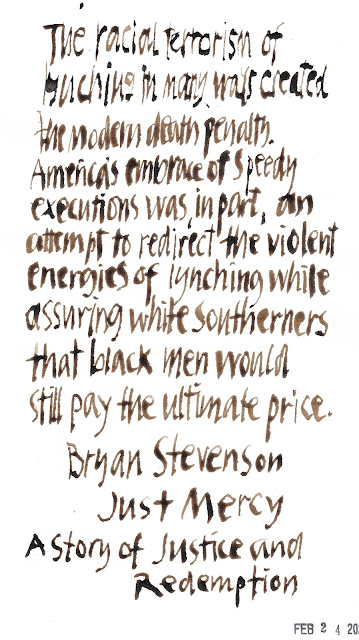 The racial terrorism of
lynching in many ways created
the modern death penalty.
America's embrace of speedy
executions was, in part, an
attempt to redirect the violent
energies of lynching while
assuring white southerners
that black men would
still pay the ultimate price.
Bryan Stevenson
Just Mercy
A Story of Justice and
Redemption
FEB 2 4 20